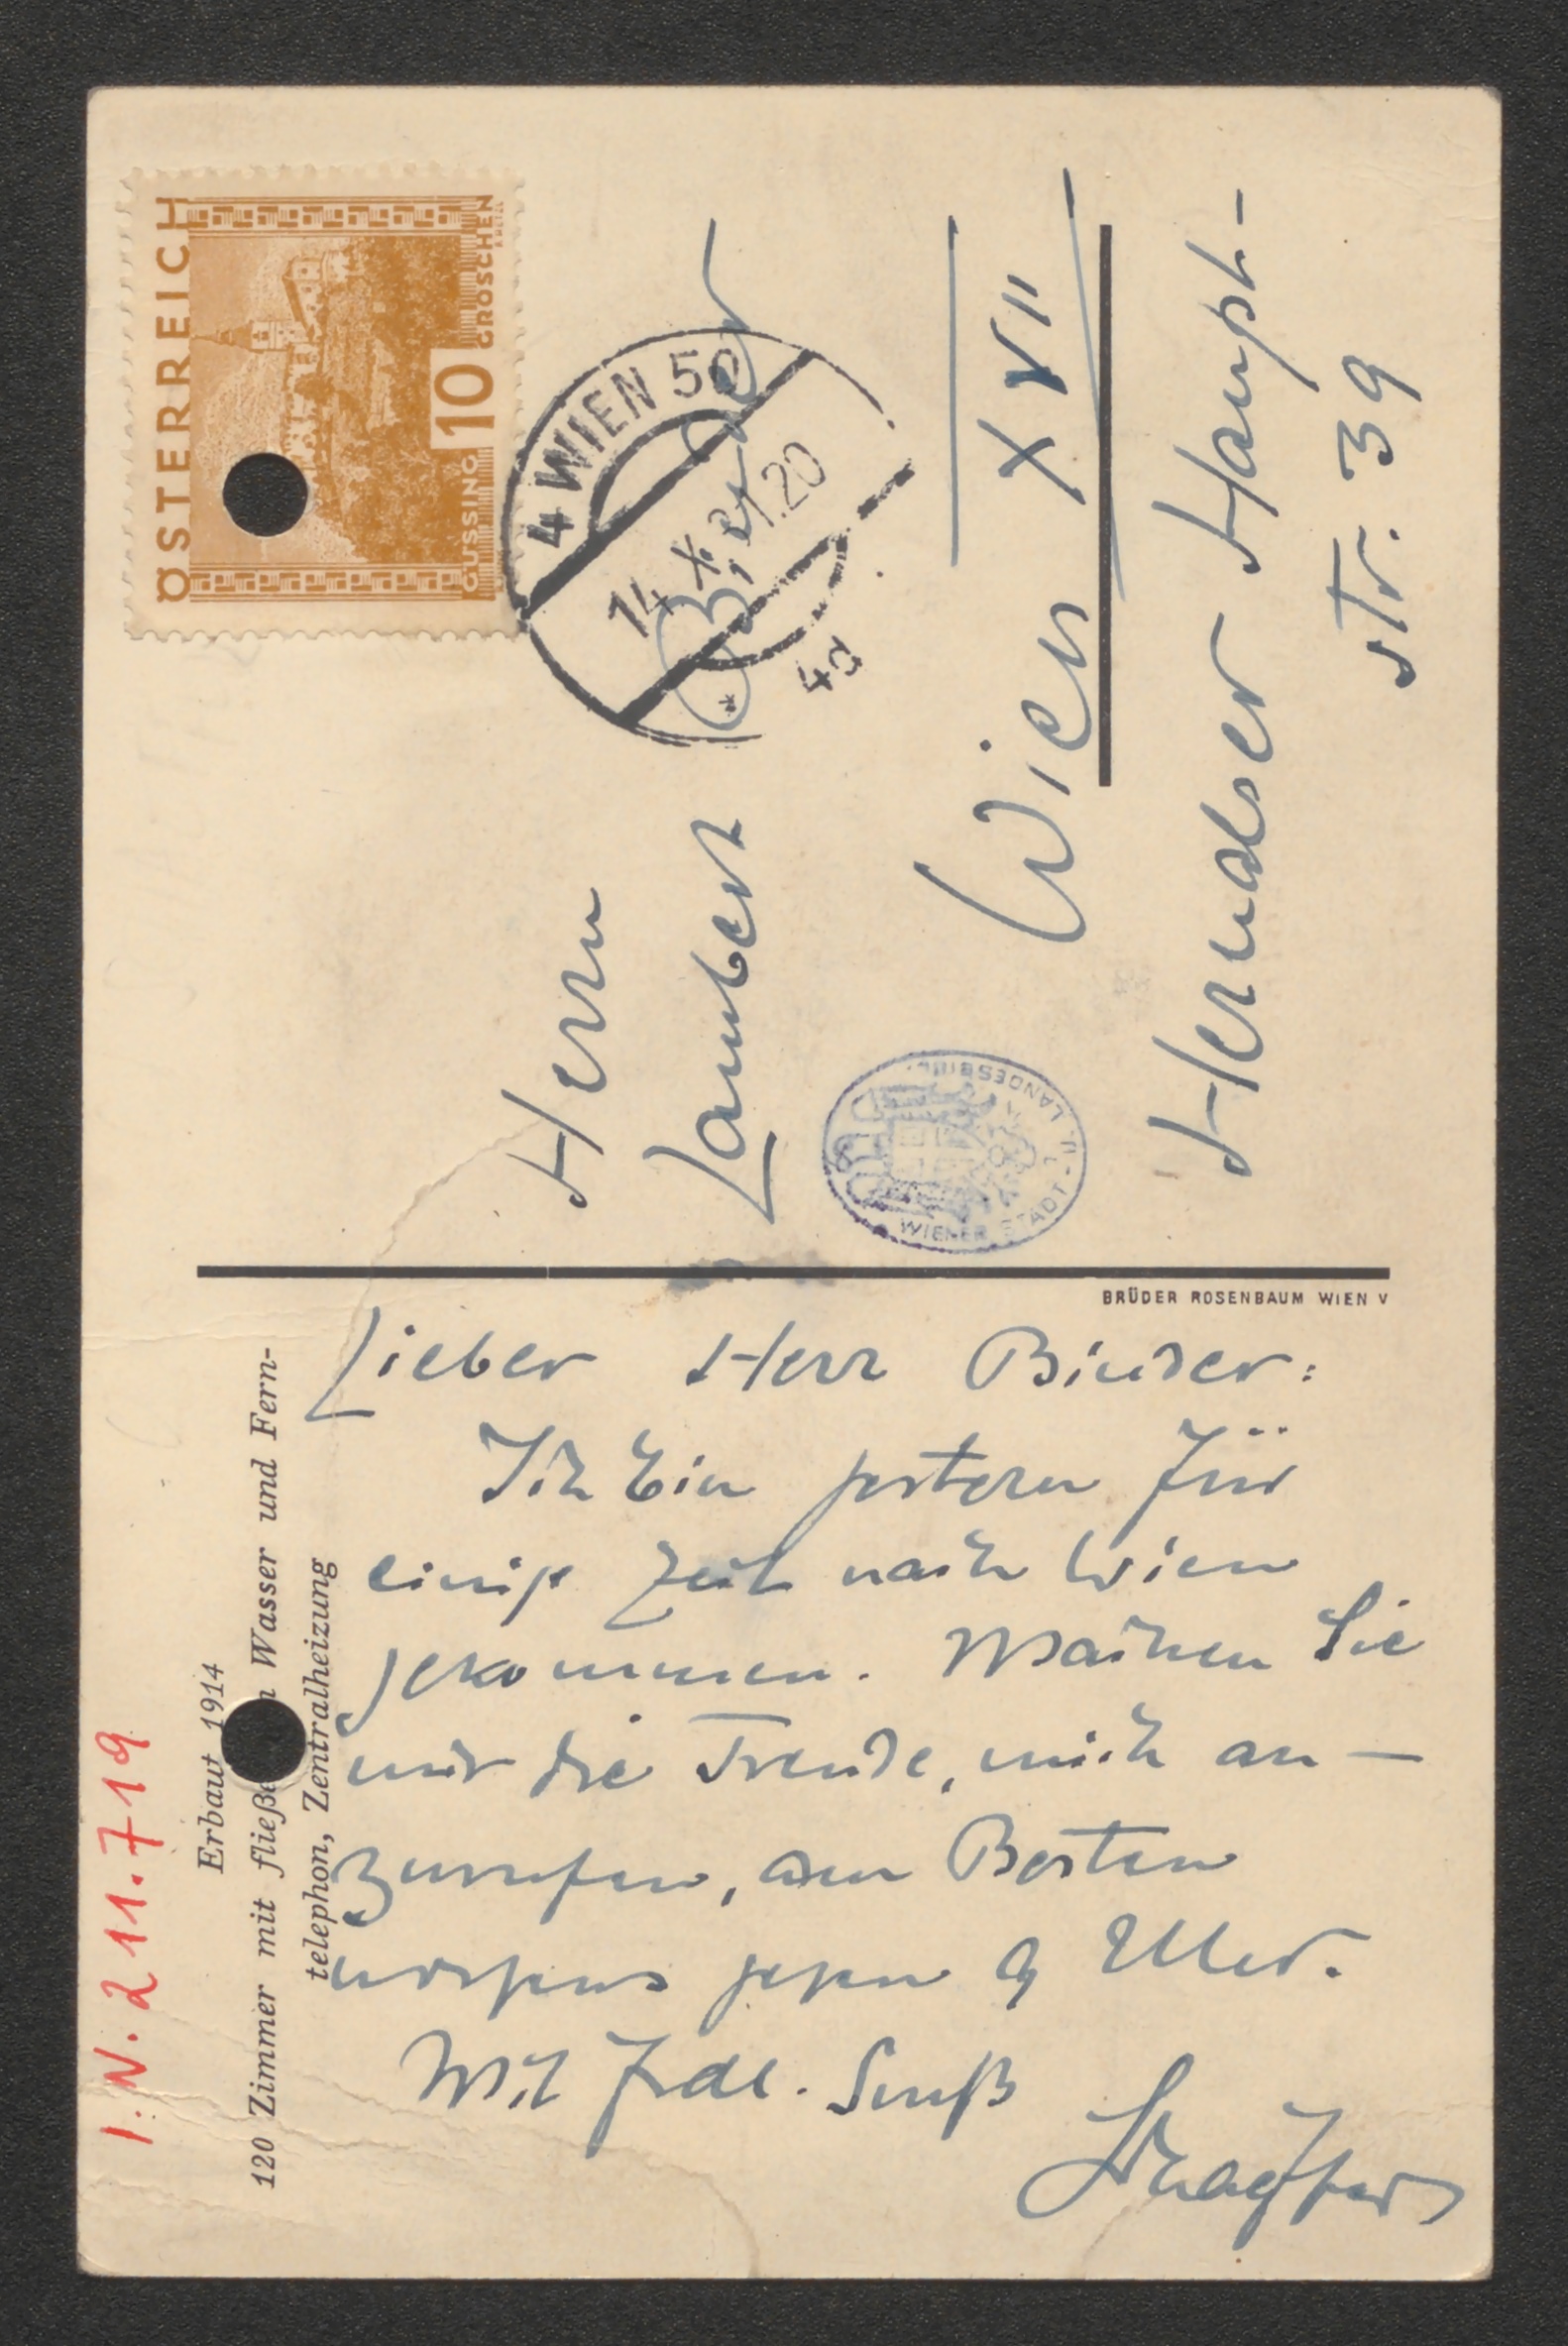 ÖSTERREICH
10
GROSCHEN
GÜSSING
4 WIEN 50
Herrn
Lambert Binder
Wien XVII
Hernalser Haupt-
str. 39
WIENER STADT- U. LANDESBIBL.
BRÜDER ROSENBAUM WIEN V
I.N. 211.719
Erbaut 1914
120 Zimmer mit fließe n Wasser und Fern-
telephon, Zentralheizung
Lieber Herr Binder:
Ich bin gestern für
einige Zeit nach Wien
gekommen. Machen Sie
mir die Freude, mich an-
zurufen, am Besten
morgens gegen 9 Uhr.
Mit frdl. Gruß